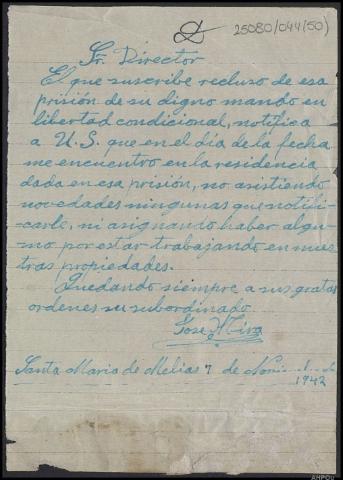 25080/044(50)
Sr. Director
El que suscribe recluso de esa
prisión de su digno mando en
libertad condicional, notifica
a U.S. que en el día de la fecha
me encuentro en la residencia
dada en esa prisión, no asistiendo
novedades ningunas que notifi-
carle, ni asignando haber algu-
no por estar trabajando en nues-
tras propiedades.
Quedando siempre a sus gratas
ordenes su subordinado
Jose
Santa Maria de Melias 7 de
1942
AHPOu